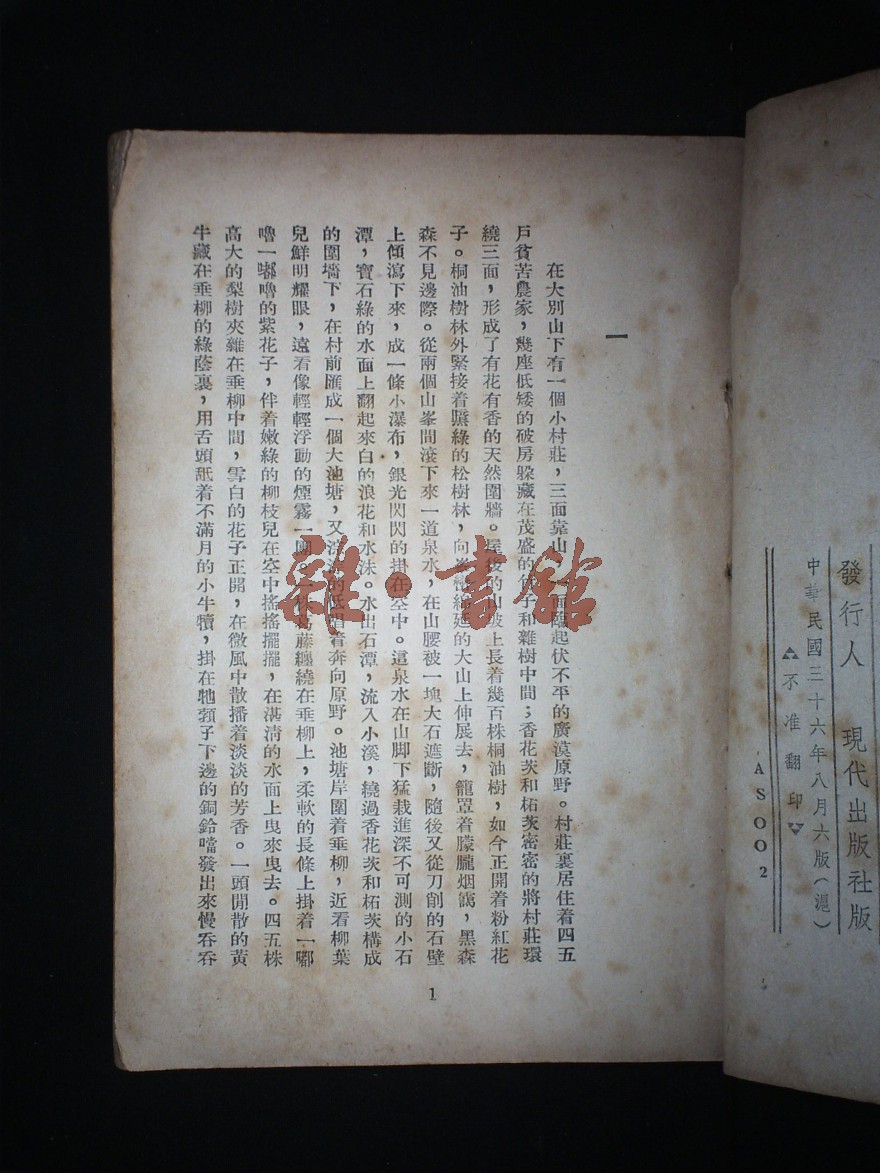 發行人　現代出版社版
中華民國三十六年八月六版(滬)
不准翻印
AS002
一
在大別山下有一個小村莊，三面靠山，一面臨起伏不平的廣漠原野。村莊裏居住着四五
戶貧苦農家，幾座低矮的破房躲藏在茂盛的竹子和雜樹中間；香花茨和柘茨密密的將村莊環
繞三面，形成了有花有香的天然圍牆。屋後的山坡上長着幾百株桐油樹，如今正開着粉紅花
子。桐油樹林外緊接着黰綠的松樹林，向綿延的大山上伸展去，籠罩着朦朧烟靄，黑森
森不見邊際。從兩個山峯間滾下來一道泉水，在山腰被一塊大石遮斷，隨後又從刀削的石壁
上傾瀉下來，成一條小瀑布，銀光閃閃的掛在空中。這泉水在山脚下猛栽進深不可測的小石
潭，寶石綠的水面上翻起來白的浪花和水沫。水出石潭，流入小溪，繞過香花茨和柘茨構成
的圍墻下，在村前匯成一個大池塘，又的低唱着奔向原野。池塘岸圍着垂柳，近看柳葉
兒鮮明耀眼，遠看像輕輕浮動的煙霧一團。一株葛藤纏繞在垂柳上，柔軟的長條上掛着一嘟
嚕一嘟嚕的紫花子，伴着嫩綠的柳枝兒在空中搖搖擺擺，在湛清的水面上曳來曳去。四五株
高大的梨樹夾雜在垂柳中間，雪白的花子正開，在微風中散播着淡淡的芳香。一頭閒散的黃
牛藏在垂柳的綠蔭裏，用舌頭舐着不滿月的小牛犢，掛在牠頦子下邊的銅鈴噹發出來慢吞吞
1
雜·書館